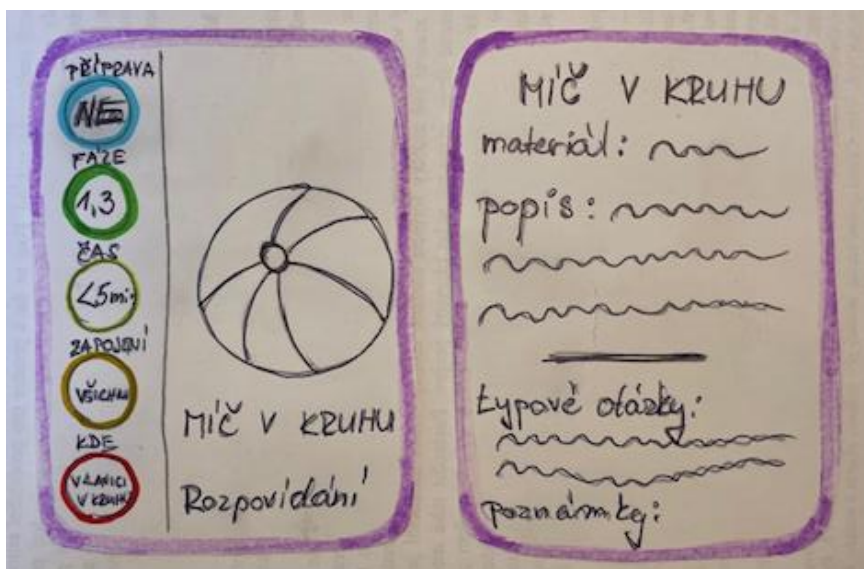 PŘÍPRAVA
NE
FÁZE
1,3
ČAS
<5mi.
ZAPOJENÍ
VŠICHNI
KDE
V LAVICI
V KRUHU
MÍČ V KRUHU
Rozpovídání
MÍČ V KRUHU
materiál:
popis:
typové otázky:
poznámky: